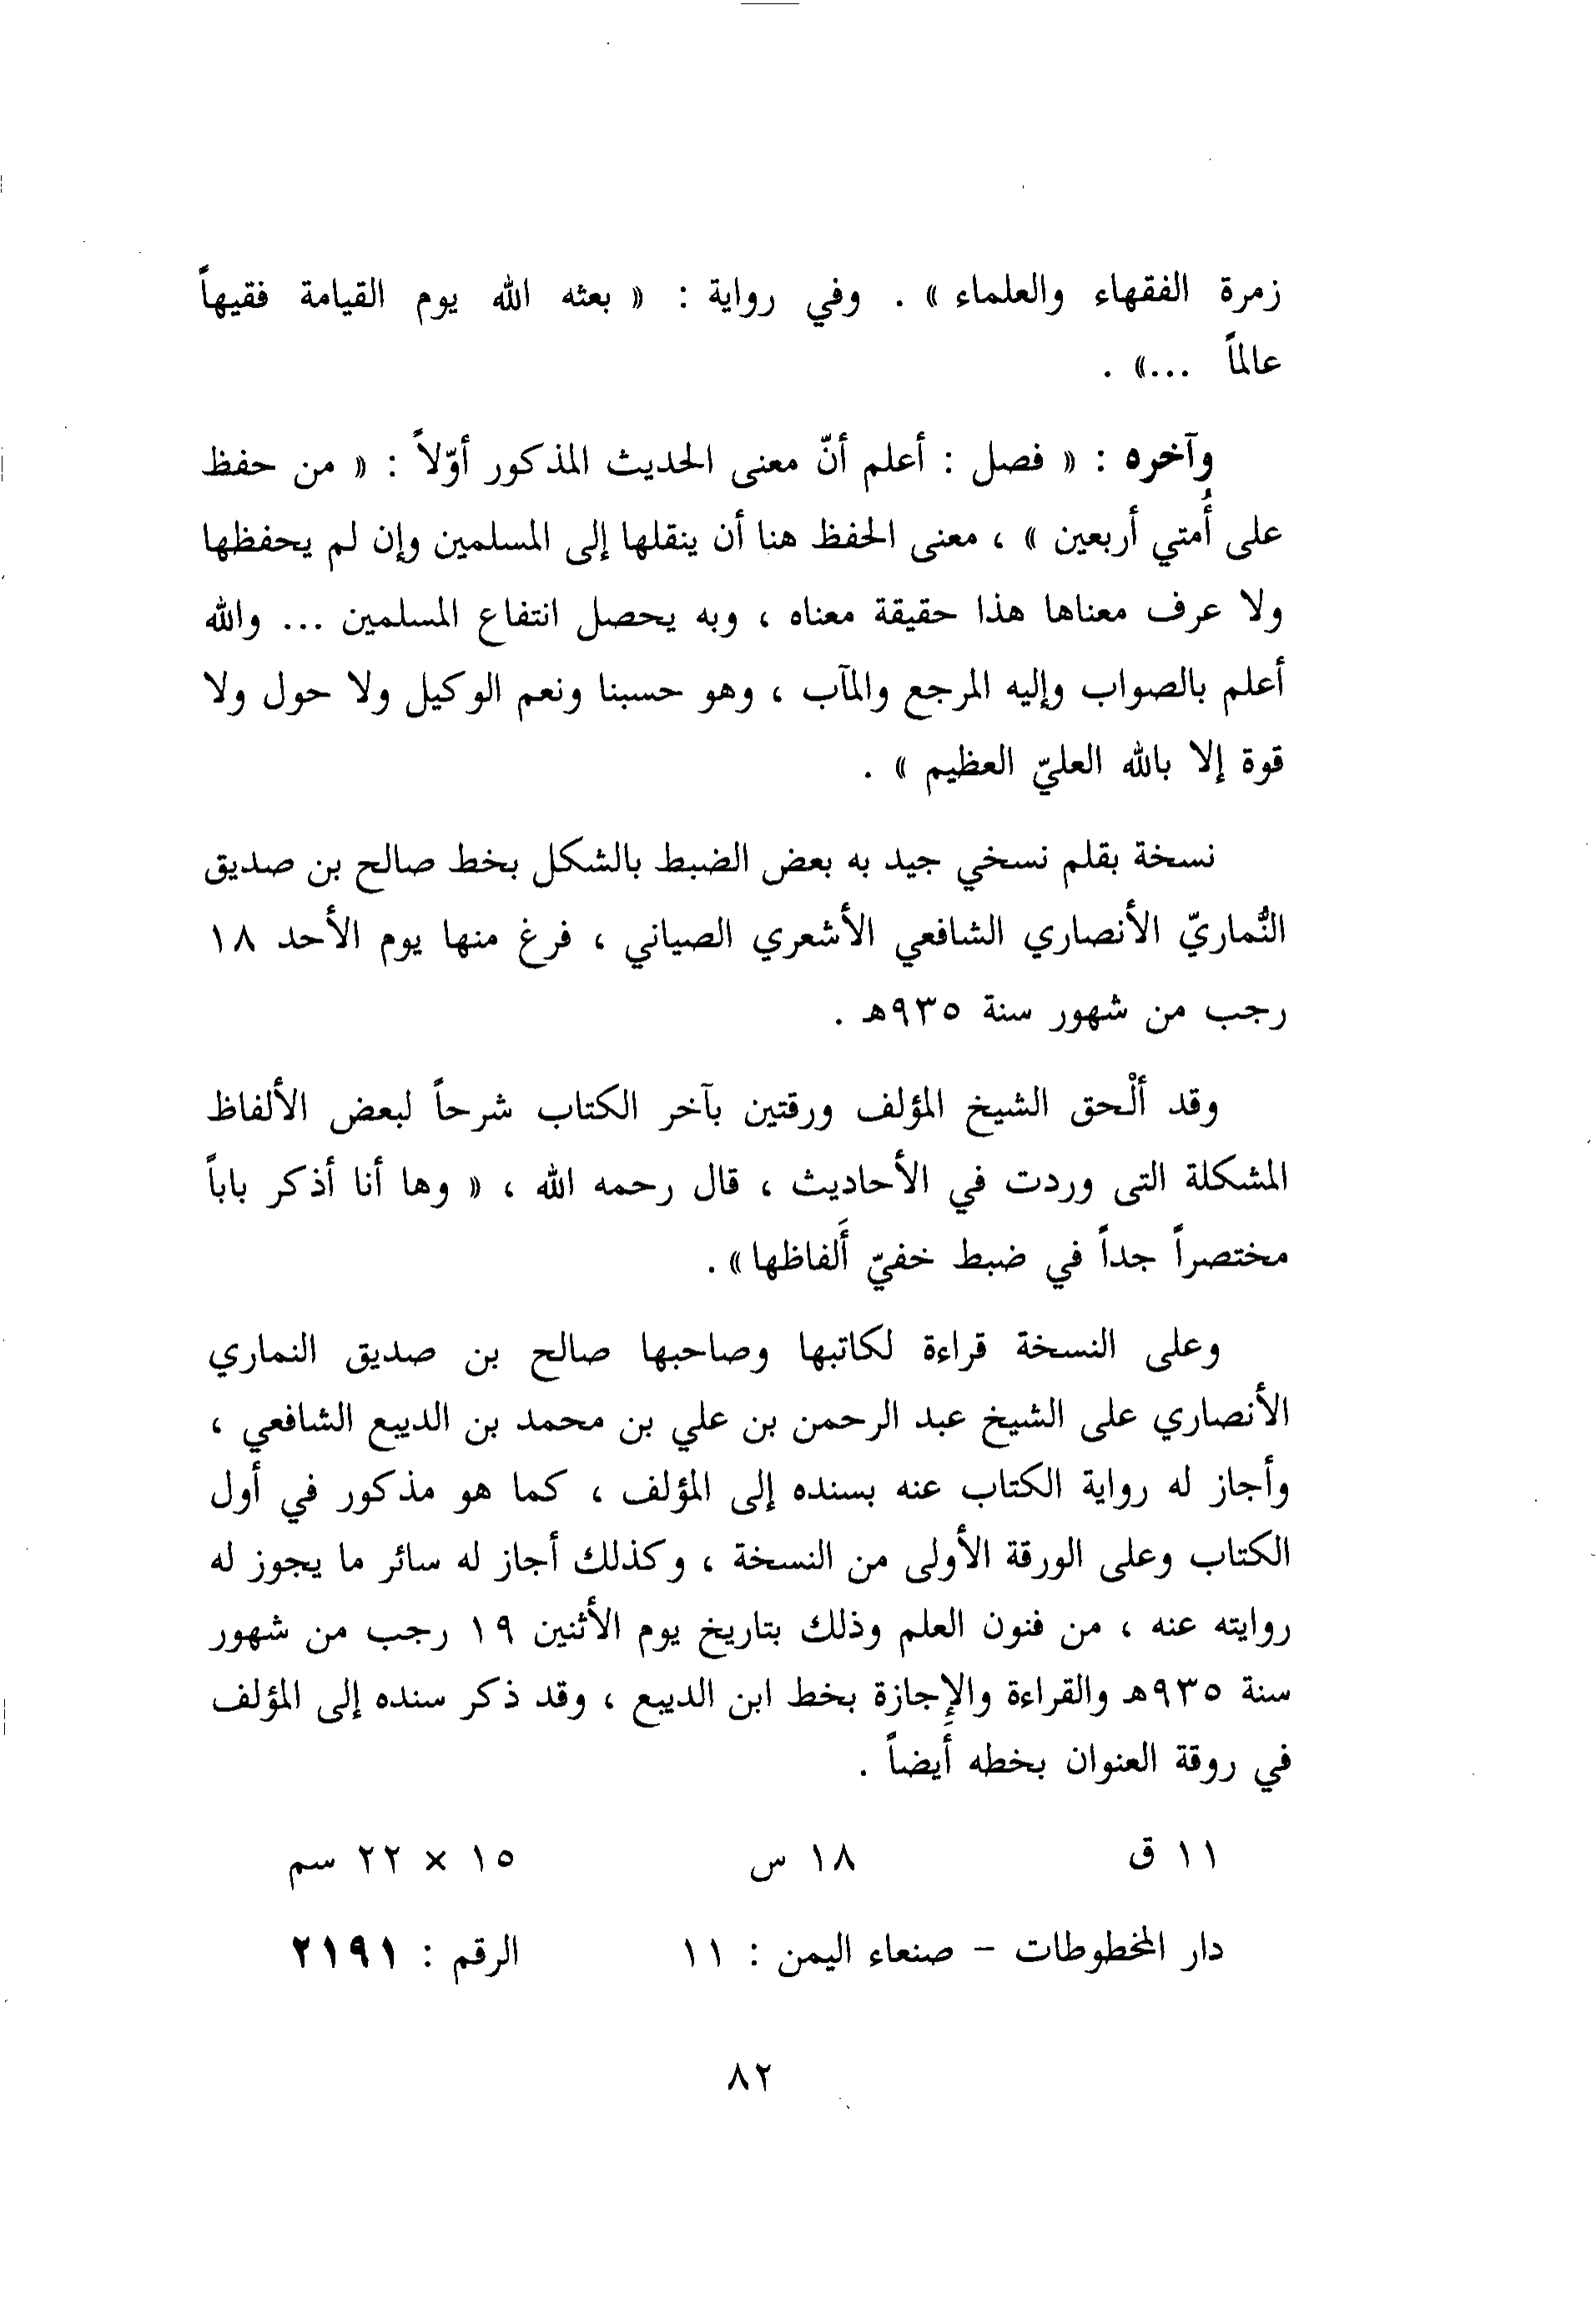 زمرة الفقهاء والعلماء » . وفي رواية : « بعثه الله يوم القيامة فقيهاً
عالماً ...» .
وآخره : « فصل : أعلم أنّ معنى الحديث المذكور أوّلاً : « من حفظ
على أُمتي أربعين » ، معنى الحفظ هنا أن ينقلها إلى المسلمين وإن لم يحفظها
ولا عرف معناها هذا حقيقة معناه ، وبه يحصل انتفاع المسلمين ... والله
أعلم بالصواب وإليه المرجع والمآب ، وهو حسبنا ونعم الوكيل ولا حول ولا
قوة إلا بالله العليّ العظيم » .
نسخة بقلم نسخي جيد به بعض الضبط بالشكل بخط صالح بن صديق
النُّماريّ الأنصاري الشافعي الأشعري الصياني ، فرغ منها يوم الأحد ١٨
رجب من شهور سنة ٩٣٥هـ .
وقد ألْحق الشيخ المؤلف ورقتين بآخر الكتاب شرحاً لبعض الألفاظ
المشكلة التى وردت في الأحاديث ، قال رحمه الله ، « وها أنا أذكر باباً
مختصراً جداً في ضبط خفيّ أَلفاظها» .
وعلى النسخة قراءة لكاتبها وصاحبها صالح بن صديق النماري
الأنصاري على الشيخ عبد الرحمن بن علي بن محمد بن الديبع الشافعي ،
وأجاز له رواية الكتاب عنه بسنده إلى المؤلف ، كما هو مذكور في أول
الكتاب وعلى الورقة الأولى من النسخة ، وكذلك أجاز له سائر ما يجوز له
روايته عنه ، من فنون العلم وذلك بتاريخ يوم الأثنين ١٩ رجب من شهور
سنة ٩٣٥هـ والقراءة والإجازة بخط ابن الديبع ، وقد ذكر سنده إلى المؤلف
في روقة العنوان بخطه أَيضاً .
١١ ق ١٨ س ١٥ × ٢٢ سم
دار المخطوطات - صنعاء اليمن : ١١ الرقم : ٢١٩١
٨٢